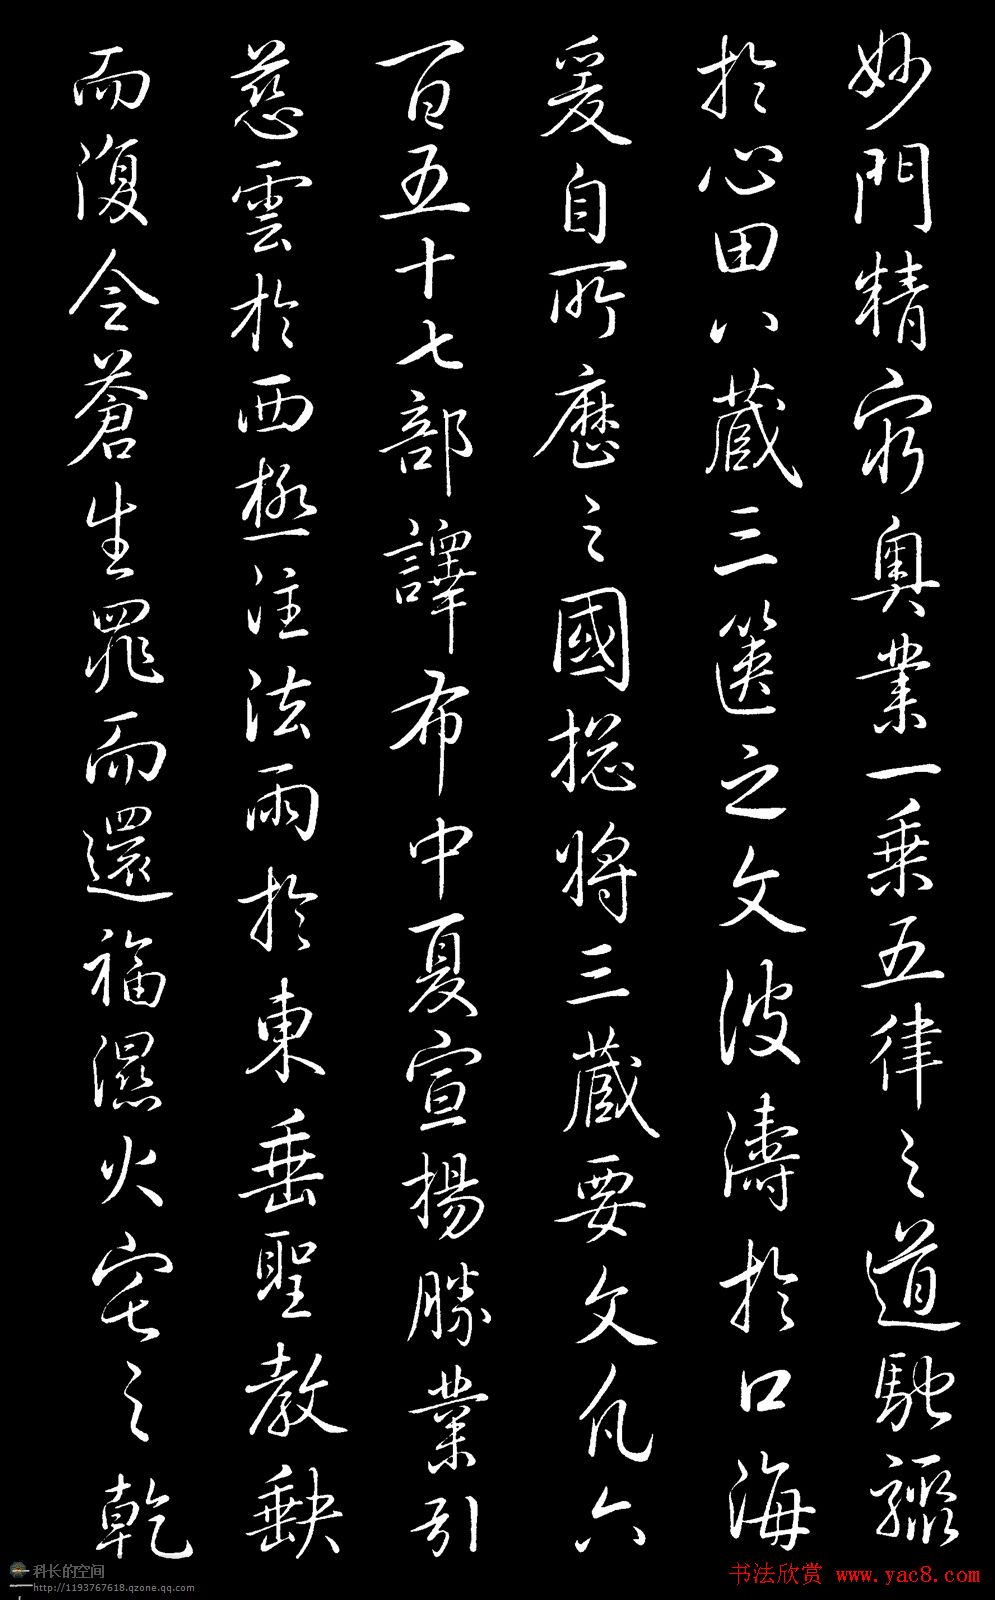 妙門精窮奧業一乗五律之道馳驟
於心田八蔵三篋之文波濤於口海
爰自所歷之國揔將三蔵要文凡六
百五十七部譯布中夏宣揚勝業引
慈雲於西極注法雨於東垂聖教缺
而復令蒼生罪而還福濕火宅之乾
科长的空间
http://1193767618.qzone.qq.com
书法欣赏 www.yac8.com